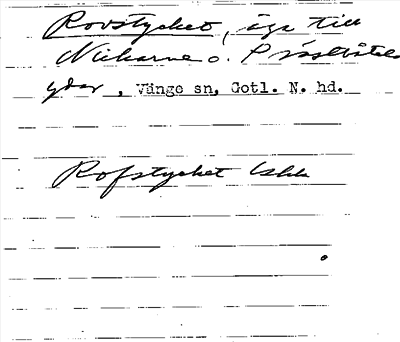 Rovstycket, äga till
Nickarve o.
gdar, Vänge sn, Gotl. N. hd.
Rofstycket